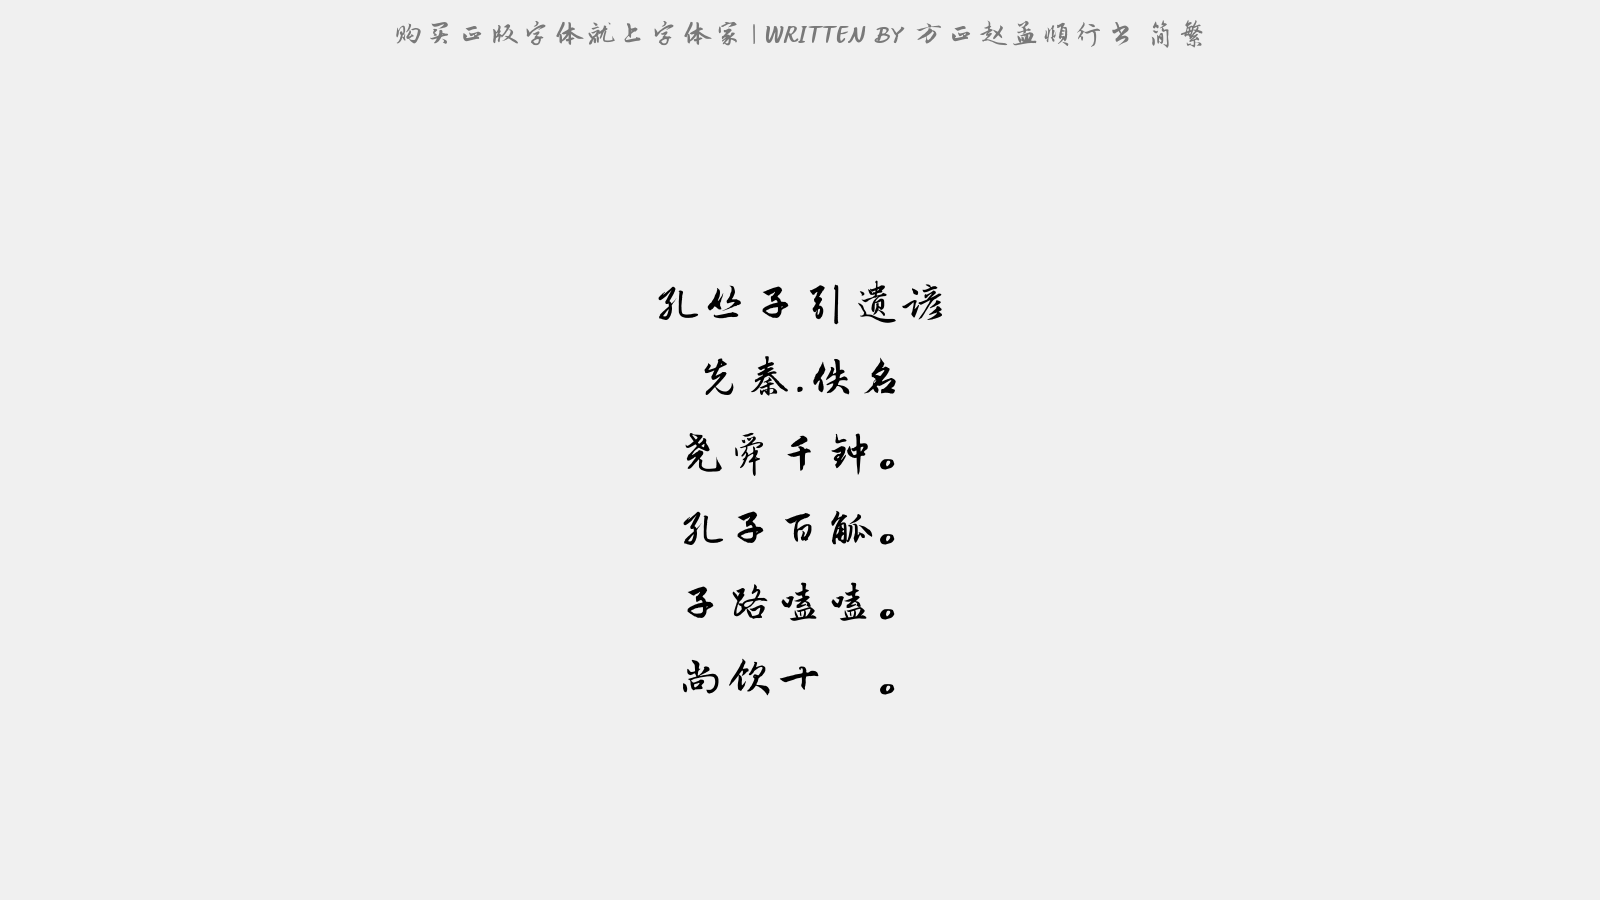 购买正版字体就上字体家 | WRITTEN BY 方正赵孟頫行书 简繁
孔丛子引遗谚
先秦.佚名
尧舜千钟。
孔子百觚。
子路嗑嗑。
尚饮十 。